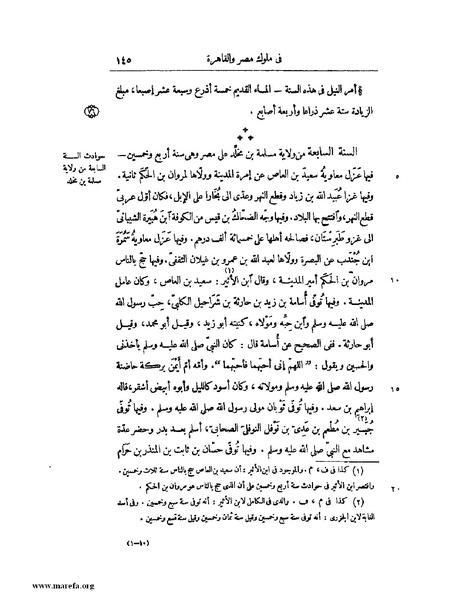 فى ملوك مصر والقاهرة ١٤٥
§ أمر النيل فى هذه السنة — الماء القديم خمسة أذرع وسبعة عشر إصبعا، مبلغ
الزيادة ستة عشر ذراعا وأربعة أصابع .
السنة السابعة من ولاية مسلمة بن مُخَلَّد على مصر وهى سنة أربع وخمسين —
حوادث السنة
السابعة من ولاية
مسلمة بن مخلد
فيها عَزَل معاويةُ سعيدَ بن العاص عن إمرة المدينة وولّاها لمروان بن الحكم ثانية.
٥
وفيها غزا عُبَيد الله بن زياد وقطع النهر وعدّى الى بُخَارا على الإبل، فكان أوّل عربىّ
قطع النهر، وافتتح بها البلاد. وفيها وجّه الضحّاك بن قيس من الكوفة ابنَ هُبَيْرة الشيبانىّ
الى غزو طَبَرِسْتَان، فصالحه أهلها على خمسمائة ألف درهم. وفيها عزل معاوية سَمُرَة
ابن جُنْدَب عن البصرة وولّاها لعبد الله بن عمرو بن غيلان الثقفىّ. وفيها حجّ بالناس
مروان بن الحكم أمير المدينة، وقال ابن الأثير: سعيد بن العاص(١)، وكان عامل
١٠
المدينة. وفيها تُوفّى أسامة بن زيد بن حارثة بن شَرَاحِيل الكلبىّ، حِبّ رسول الله
صلى الله عليه وسلم وآبن حِبّه ومَوْلاه، كنيته أبو زيد، وقيل أبو محمد، وقيل
أبو حارثة. ففى الصحيح عن أسامة قال: كان النبىّ صلى الله عليه وسلم يأخذنى
والحسين ويقول: "اللهمّ إنى أحبّهما فأحبّهما". وأمه أمّ أَيْمَن بركة حاضنة
رسول الله صلى الله عليه وسلم ومولاته، وكان أسود كالليل وأبوه أبيض أشقر، قاله
١٥
إبراهيم بن سعد. وفيها تُوفّى ثَوْبان مولى رسول الله صلى الله عليه وسلم. وفيها تُوفّى
جُبَيْر بن مُطْعِم بن عَدِىّ بن نَوْفل النوفلىّ(٢) الصحابىّ، أسلم بعد بدر وحضر عدّة
مشاهد مع النبىّ صلى الله عليه وسلم. وفيها تُوفّى حسّان بن ثابت بن المنذر بن حَرَام
(١) كذا فى ف، م. والموجود فى ابن الأثير: أن سعيد بن العاص حج بالناس سنة ثلاث وخمسين.
واقتصر ابن الأثير فى حوادث سنة أربع وخمسين على أن الذى حج بالناس هو مروان بن الحكم.
٢٠
(٢) كذا فى م، ف. والذى فى الكامل لابن الأثير: أنه توفى سنة سبع وخمسين. وفى أسد
الغابة لابن الجزرى: أنه توفى سنة سبع وخمسين وقيل سنة ثمان وخمسين وقيل سنة تسع وخمسين.
(١٠-١)
www.marefa.org